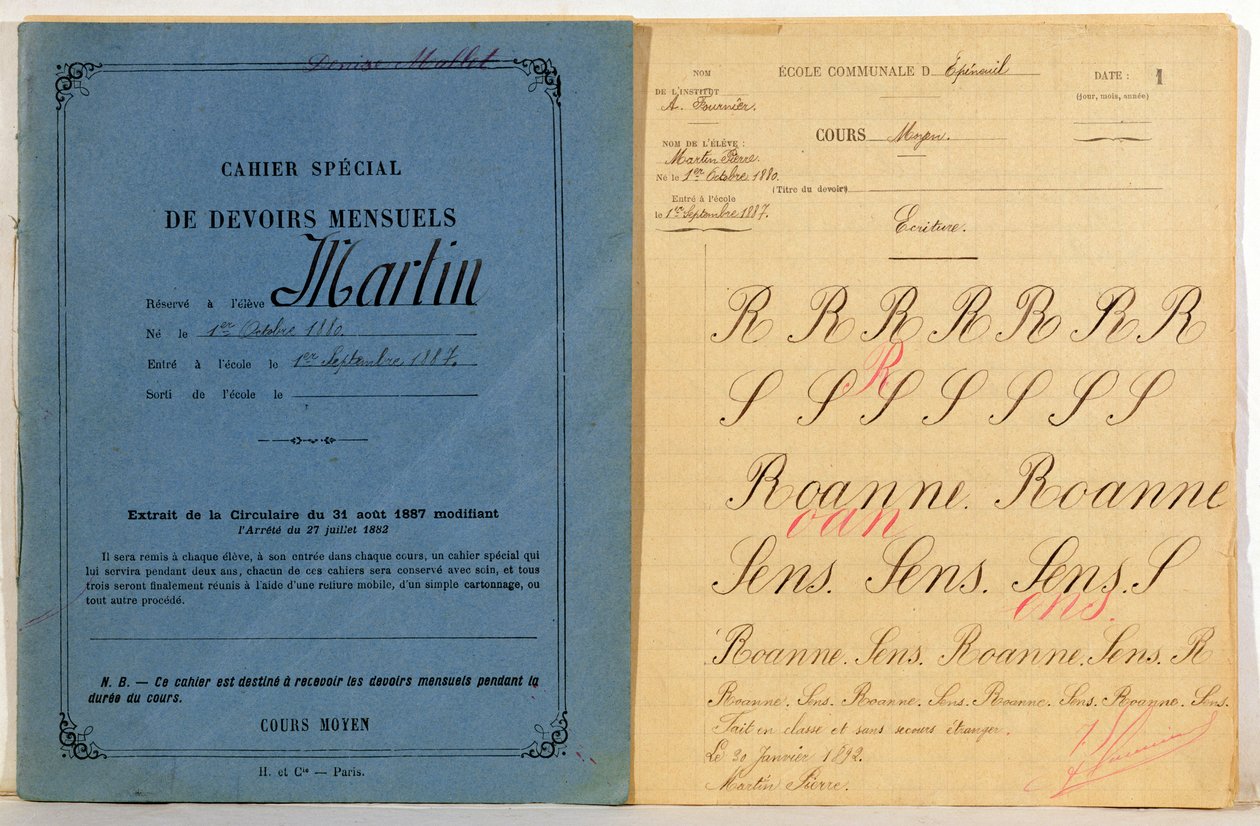 Denise Mallet
CAHIER SPÉCIAL
DE DEVOIRS MENSUELS
Réservé à l'élève Martin
Né le 1er Octobre 1880
Entré à l'école le 1er Septembre 1887.
Sorti de l'école le
Extrait de la Circulaire du 31 août 1887 modifiant
l'Arrêté du 27 juillet 1882
Il sera remis à chaque élève, à son entrée dans chaque cours, un cahier spécial qui
lui servira pendant deux ans, chacun de ces cahiers sera conservé avec soin, et tous
trois seront finalement réunis à l'aide d'une reliure mobile, d'un simple cartonnage, ou
tout autre procédé.
N. B. — Ce cahier est destiné à recevoir les devoirs mensuels pendant la
durée du cours.
COURS MOYEN
H. et Cie — Paris.
NOM
DE L'INSTIT
A. Fournier.
ÉCOLE COMMUNALE D Épineuil
DATE : 1
(jour, mois, année)
COURS Moyen.
NOM DE L'ÉLÈVE :
Martin Pierre.
Né le 1er Octobre 1880.
(Titre du devoir)
Entré à l'école
le 1er Septembre 1887.
Ecriture.
R R R R R R R
R
S S S S S S S
Roanne. Roanne
oan
Sens. Sens. Sens. S
ens.
Roanne. Sens. Roanne. Sens. R
Roanne. Sens. Roanne. Sens. Roanne. Sens. Roanne. Sens.
Fait en classe et sans secours étranger.
Le 30 Janvier 1892.
Martin Pierre.
7